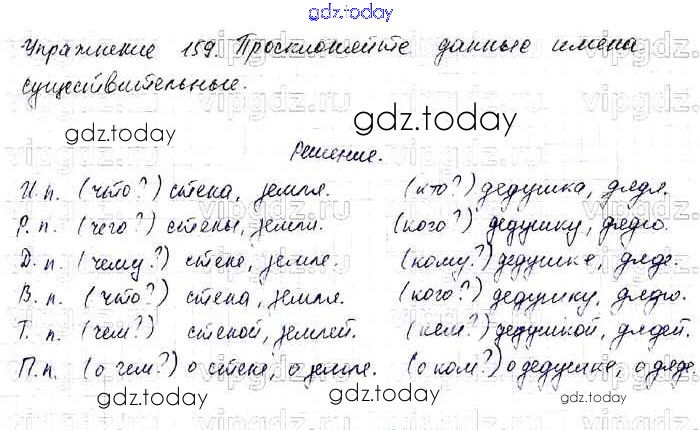 gdz.today
Упражнение 159. Просклоняйте данные имена
существительные.
gdz.today gdz.today
Решение.
И. п. (что?) стена, земля. (кто?) дедушка, дядя.
Р. п. (чего?) стены, земли. (кого?) дедушку, дядю.
Д. п. (чему?) стене, земле. (кому?) дедушке, дяде.
В. п. (что?) стена, земля. (кого?) дедушку, дядю.
Т. п. (чем?) стеной, землей. (кем?) дедушкой, дядей.
П. п. (о чем?) о стене, о земле. (о ком?) о дедушке, о дяде.
gdz.today gdz.today gdz.today